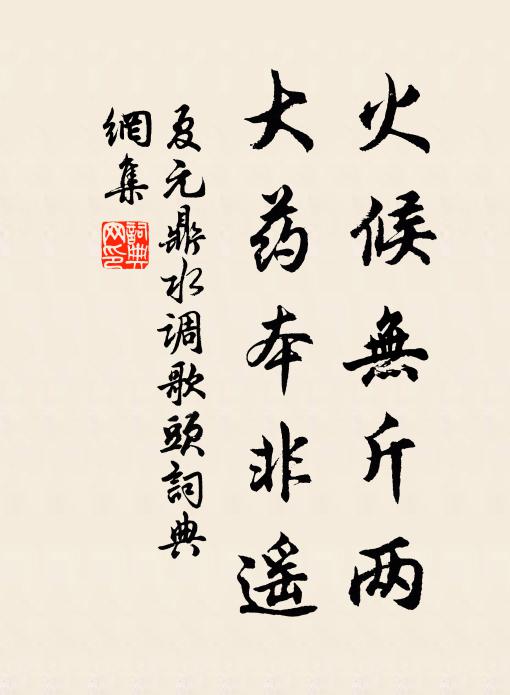 火候無斤两
大药本非遥
夏元鼎水调歌頭詞典
網集
詞典网印